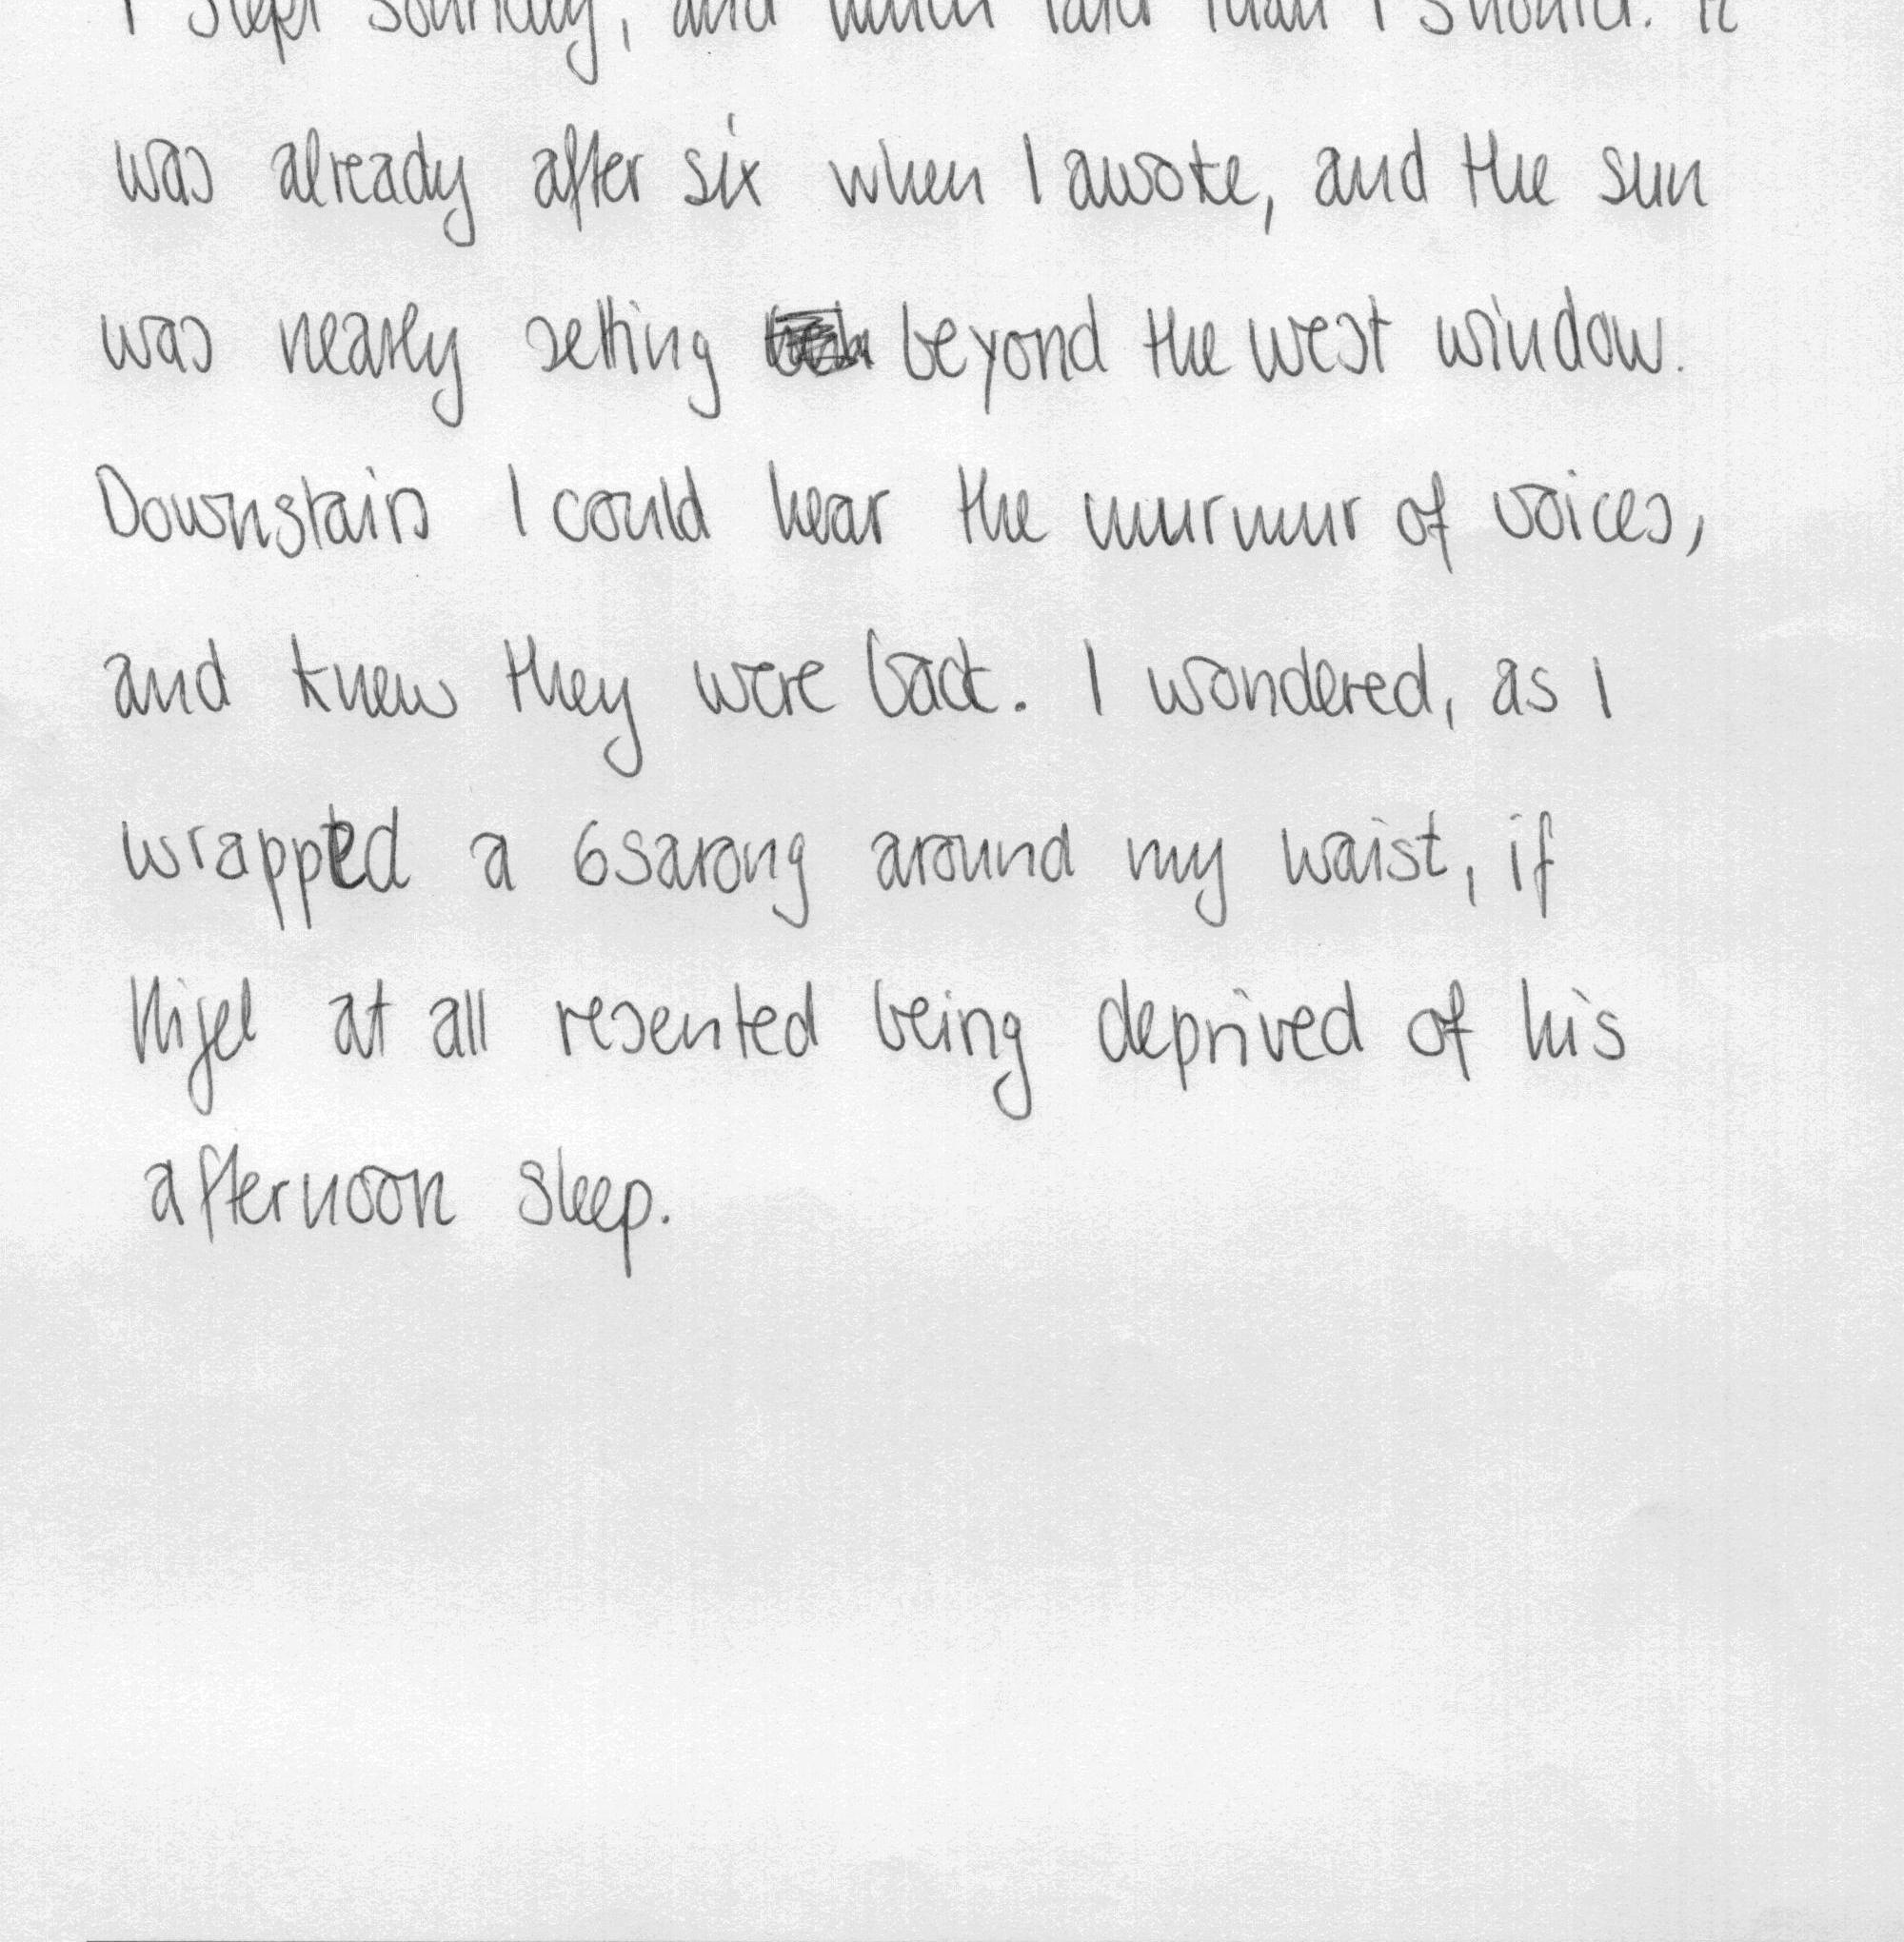 I slept soundly, and much later than I should. It
was already after six when I awoke, and the sun
was nearly setting beyond the west window.
Downstairs I could hear the murmur of voices,
and knew they were back. I wondered, as I
wrapped a 6sarong around my waist, if
Nigel at all resented being deprived of his
afternoon sleep.